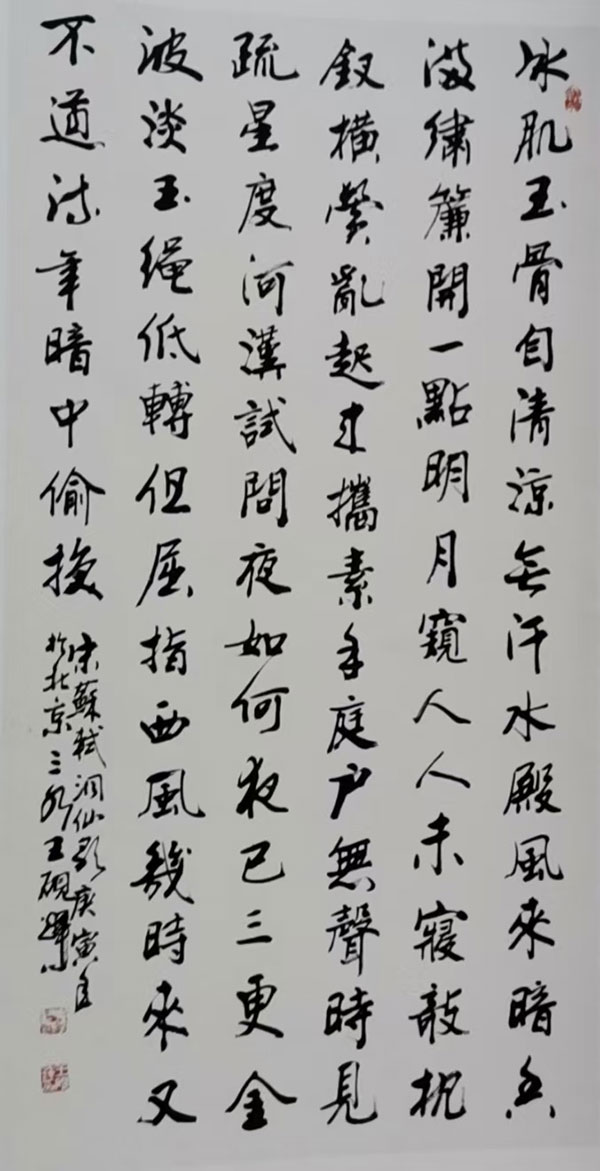 冰肌玉骨自清涼無汗水殿風來暗香
滿繡簾開一點明月窺人人未寢敧枕
釵橫鬢亂起來攜素手庭戶無聲時見
疏星度河漢試問夜如何夜已三更金
波淡玉繩低轉但屈指西風幾時來又
不道流年暗中偷換
宋蘇軾洞仙歌庚寅年
於北京三水王硯輝